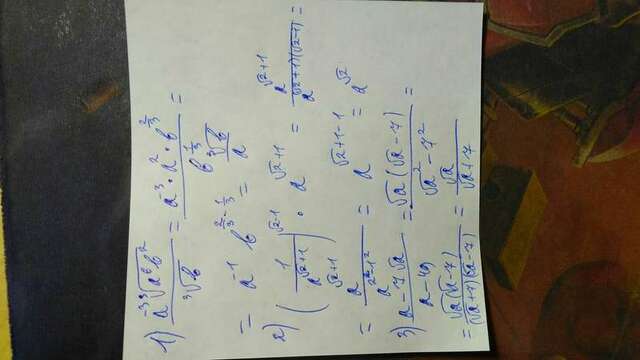 1) \frac{a^{-3}\sqrt[3]{a^6 b^2}}{\sqrt[3]{b}} = \frac{a^{-3} \cdot a^2 \cdot b^{\frac{2}{3}}}{b^{\frac{1}{3}}} =
= a^{-1} b^{\frac{2}{3}-\frac{1}{3}} = \frac{\sqrt[3]{b}}{a}
2) \left(\frac{1}{a^{\sqrt{2}+1}}\right)^{\sqrt{2}-1} \cdot a^{\sqrt{2}+1} = \frac{a^{\sqrt{2}+1}}{a^{(\sqrt{2}+1)(\sqrt{2}-1)}} =
= \frac{a^{\sqrt{2}+1}}{a^{\sqrt{2}^2-1^2}} = a^{\sqrt{2}+1-1} = a^{\sqrt{2}}
3) \frac{a-7\sqrt{a}}{a-49} = \frac{\sqrt{a}(\sqrt{a}-7)}{\sqrt{a}^2-7^2} =
= \frac{\sqrt{a}(\sqrt{a}-7)}{(\sqrt{a}+7)(\sqrt{a}-7)} = \frac{\sqrt{a}}{\sqrt{a}+7}